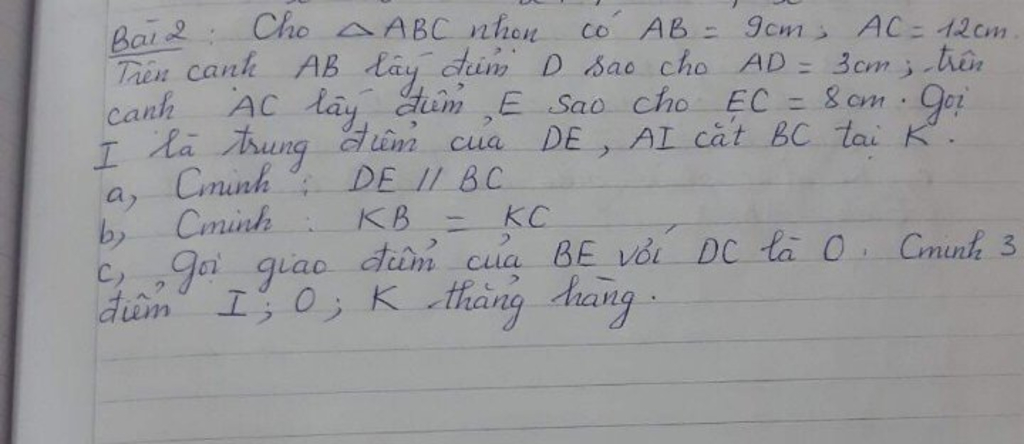 Bài 2 : Cho △ABC nhọn có AB = 9cm ; AC = 12cm.
Trên cạnh AB lấy điểm D sao cho AD = 3cm ; trên
cạnh AC lấy điểm E sao cho EC = 8cm . Gọi
I là trung điểm của DE , AI cắt BC tại K .
a, Cminh : DE // BC
b, Cminh : KB = KC
c, Gọi giao điểm của BE với DC là O . Cminh 3
điểm I ; O ; K thẳng hàng .